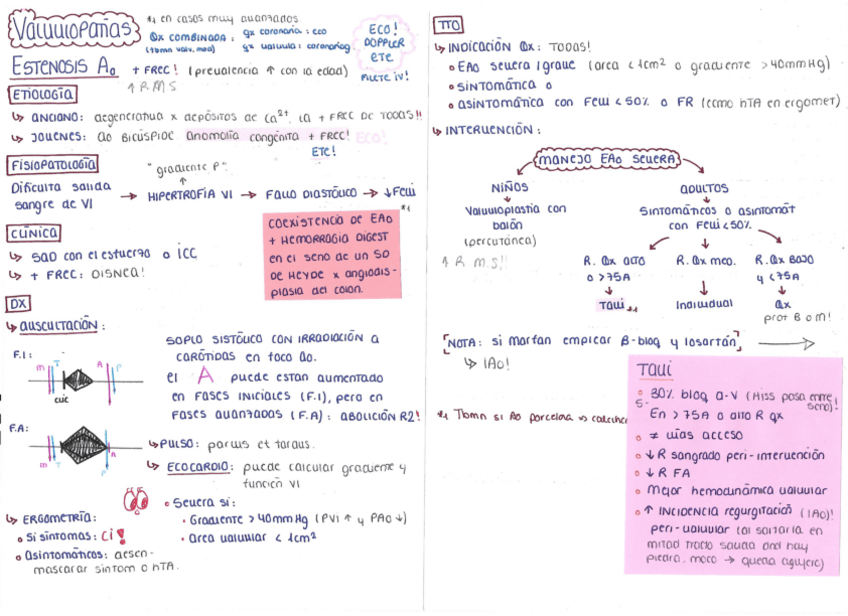 Valvulopatías
*1 en casos muy avanzados
Qx COMBINADA: qx coronaria: eco
(tbmn valv. mea) qx valvula: coronariog.
ECO!
DOPPLER
ETE
ESTENOSIS Ao + FREC! (prevalencia ↑ con la edad)
↑ R M S
ETIOLOGÍA
↳ ANCIANO: degenerativa x depósitos de Ca2+. La + FREC DE TODAS!!
↳ JOVENES: ao BICÚSPIDE anomalía congénita + FREC! ECO!
ETE!
FISIOPATOLOGÍA
"gradiente P"
Dificulta salida sangre de VI → HIPERTROFIA VI → Fallo DIASTÓLICO → ↓Fevi
*1
CLÍNICA
↳ SAD con el esfuerzo o ICC
↳ + FREC: DISNEA!
COEXISTENCIA DE EAo
+ HEMORRAGIA DIGEST
en el seno de un SD
DE HEYDE x angiodis-
plasia del colon.
DX
↳ AUSCULTACIÓN:
F.I:
m T A P
clic
SOPLO SISTÓLICO CON IRRADIACIÓN A
CARÓTIDAS en foco ao.
el A puede estan aumentado
en FASES INICIALES (F.I), pero en
FASES avanzadas (F.A): ABOLICIÓN R2!
F.A:
m T P A
↳ PULSO: parvus et tardus.
↳ ECOCARDIO: puede calcular gradiente y
función VI
• Severa si:
• Gradiente > 40mmHg (PVI ↑ y PAO ↓)
• Area valvular < 1cm²
↳ ERGOMETRÍA:
• Si síntomas: CI!
• Asintomáticos: desen-
mascarar síntom o hTA.
TTO
↳ INDICACIÓN Qx: TODAS!
• EAo severa/grave (area < 1cm² o gradiente > 40mmHg)
• sintomática o
• asintomática con Fevi < 50% o FR (como hTA en ergomet)
↳ INTERVENCIÓN:
MANEJO EAo SEVERA
NIÑOS
Valvuloplastia con
balón
(percutánea)
↑ R M.S!!
ADULTOS
Sintomáticos o asintomát
con Fevi < 50%.
R. Qx alto
o >75A
TAVI *1
R. Qx med.
Individual
R. Qx BAJO
y <75A
Qx
prot B o m!
[NOTA: si marfan empezar B-bloq y losartán]
↳ IAo!
*1 Tbmn si Ao porcelana
TAVI
• 30% bloq a-V (Hiss pasa entre
5- seno)!
En > 75A o alto R qx
• ≠ vías acceso
• ↓ R sangrado peri-intervención
• ↓ R FA
• Mejor hemodinámica valvular
• ↑ INCIDENCIA regurgitación (IAo)!
peri-valvular